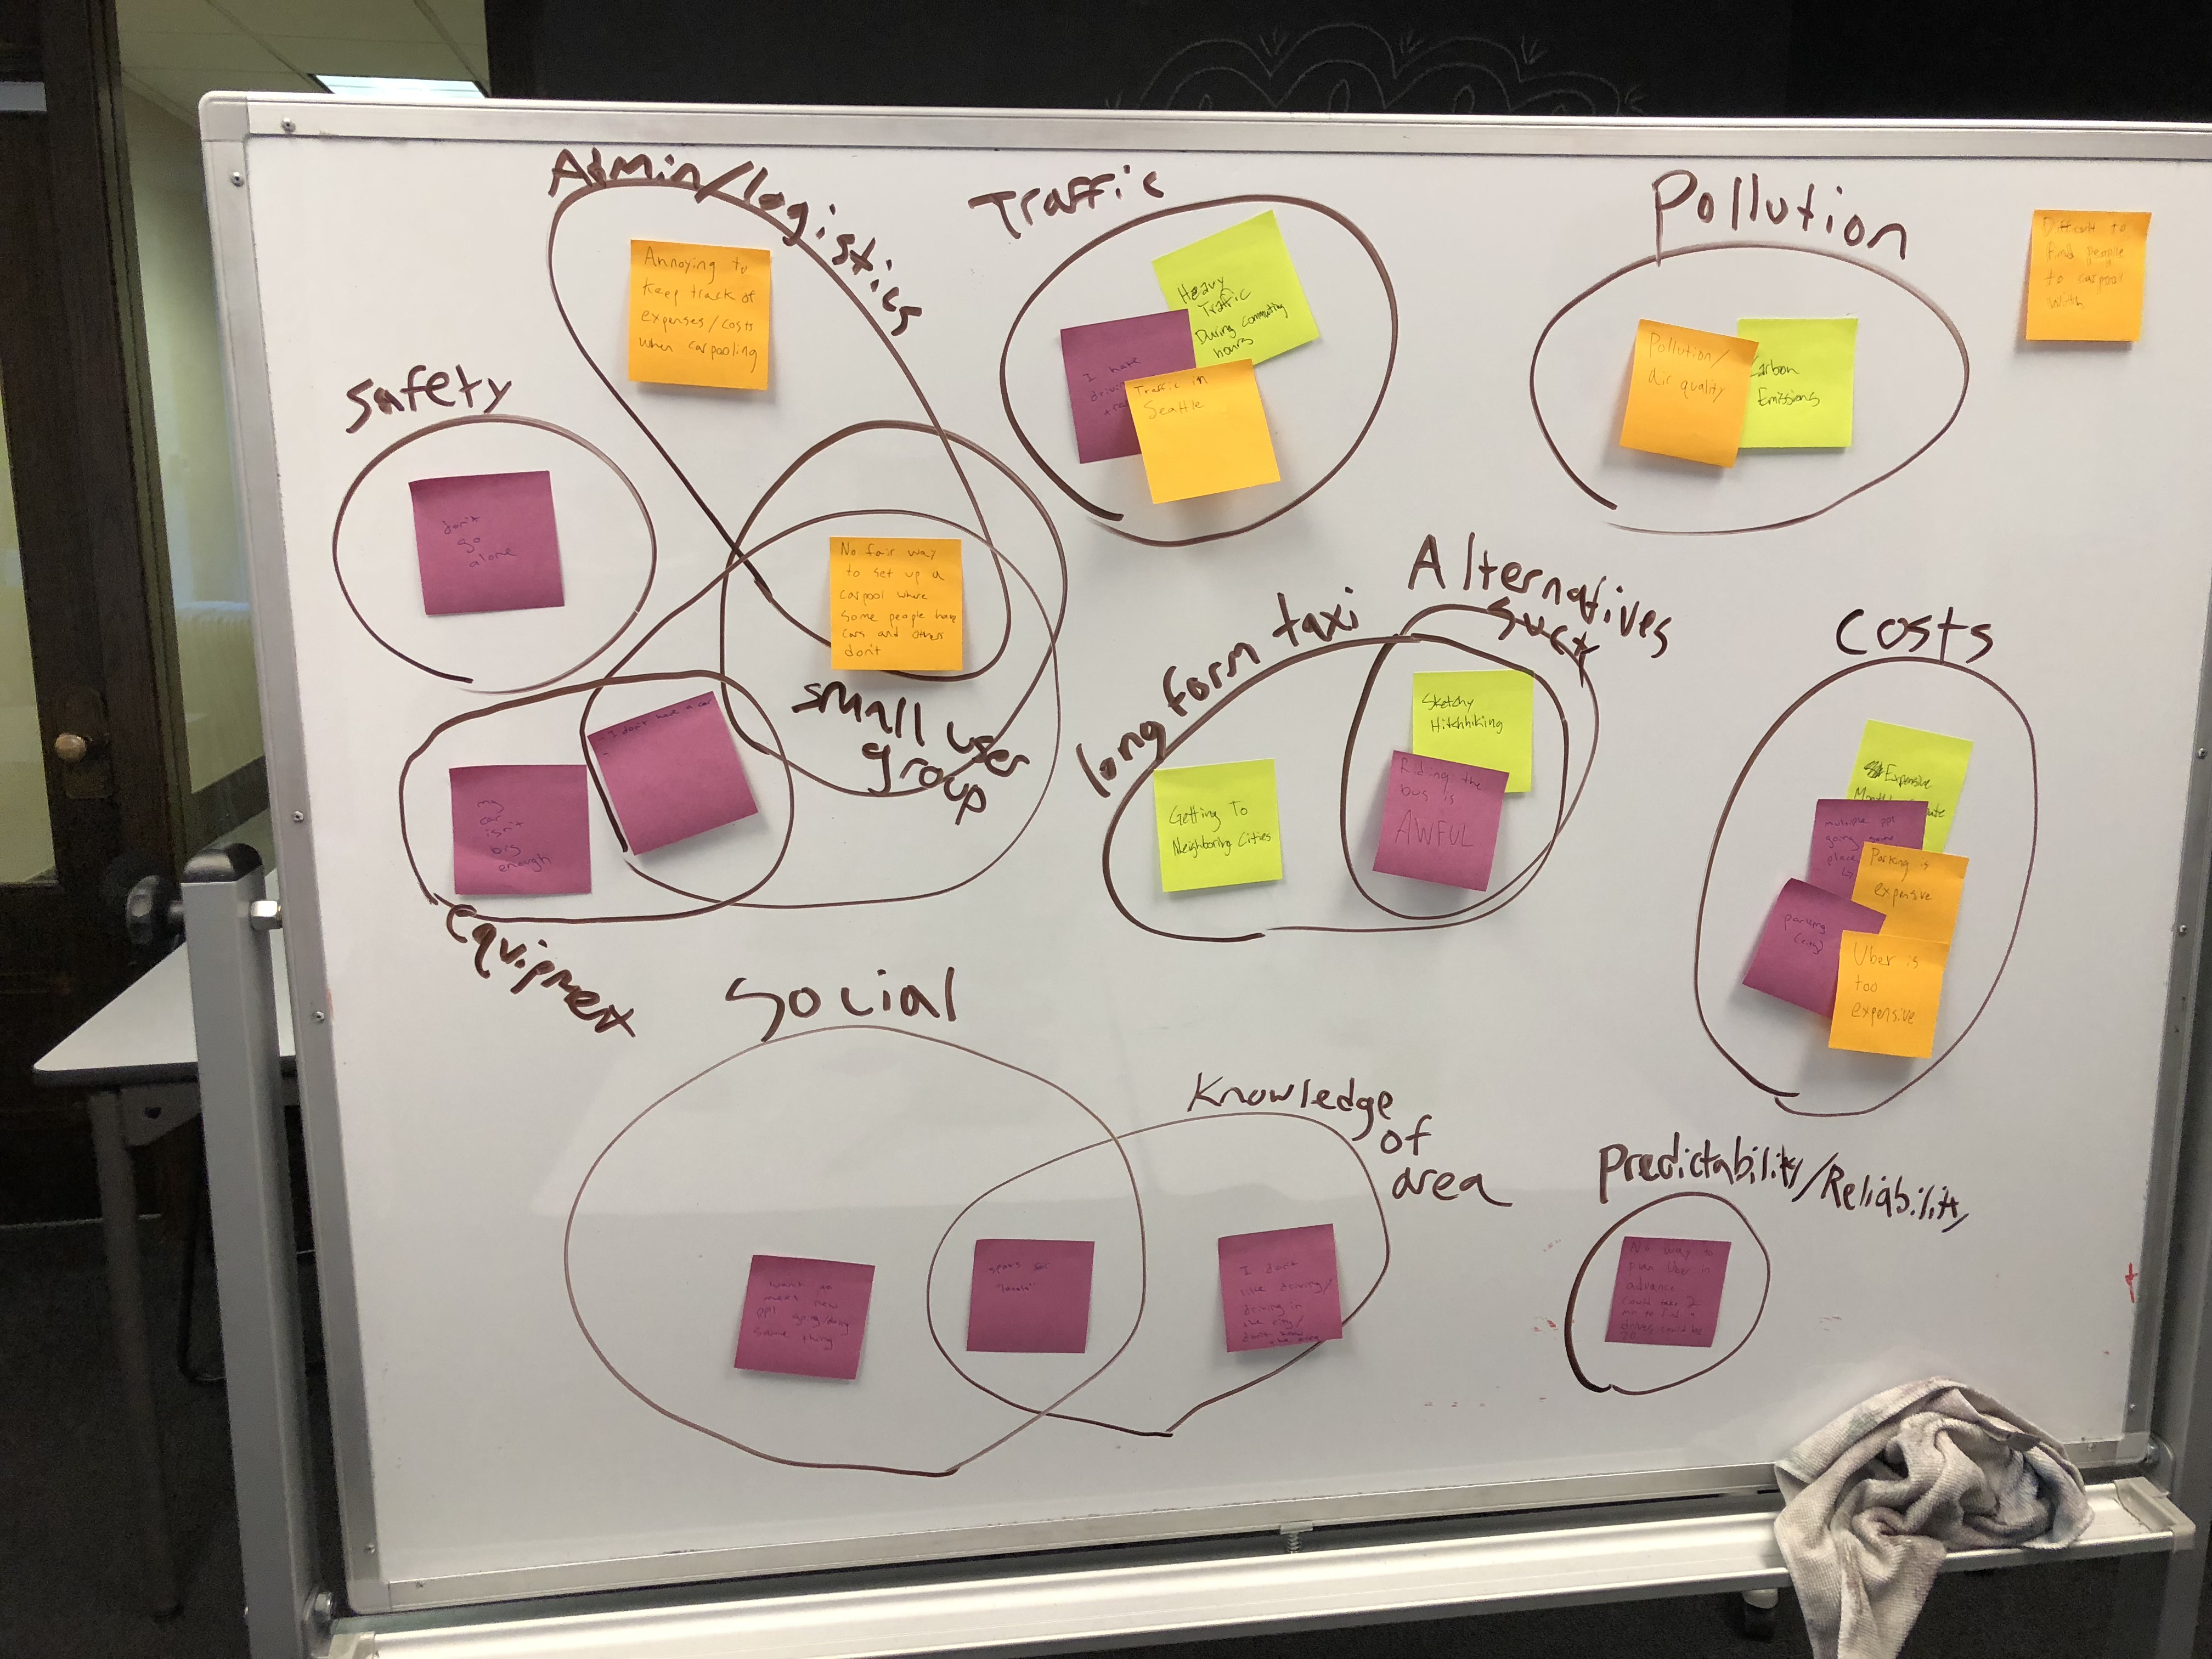 Admin/logistics
Annoying to
keep track of
expenses/costs
when carpooling
Traffic
Heavy
Traffic
During commuting
hours
I hate
Traffic in
Seattle
Pollution
Pollution/
air quality
Carbon
Emissions
Difficult to
find people
to carpool
with
Safety
don't
go
alone
No fair way
to set up a
carpool where
some people have
cars and others
don't
small user
group
I don't have a car
my
car
isn't
big
enough
equipment
long form taxi
Getting To
Neighboring Cities
Alternatives
suck
Sketchy
Hitchhiking
Riding the
bus is
AWFUL
Costs
Expensive
multiple ppl
going same
place
Parking is
expensive
parking
Uber is
too
expensive
Social
want to
meet new
ppl going/doing
same thing
Knowledge
of
area
spots for
I don't
like driving/
driving in
the city/
don't know
the area
Predictability/Reliability
No way to
plan Uber in
advance
could take 2
min to find a